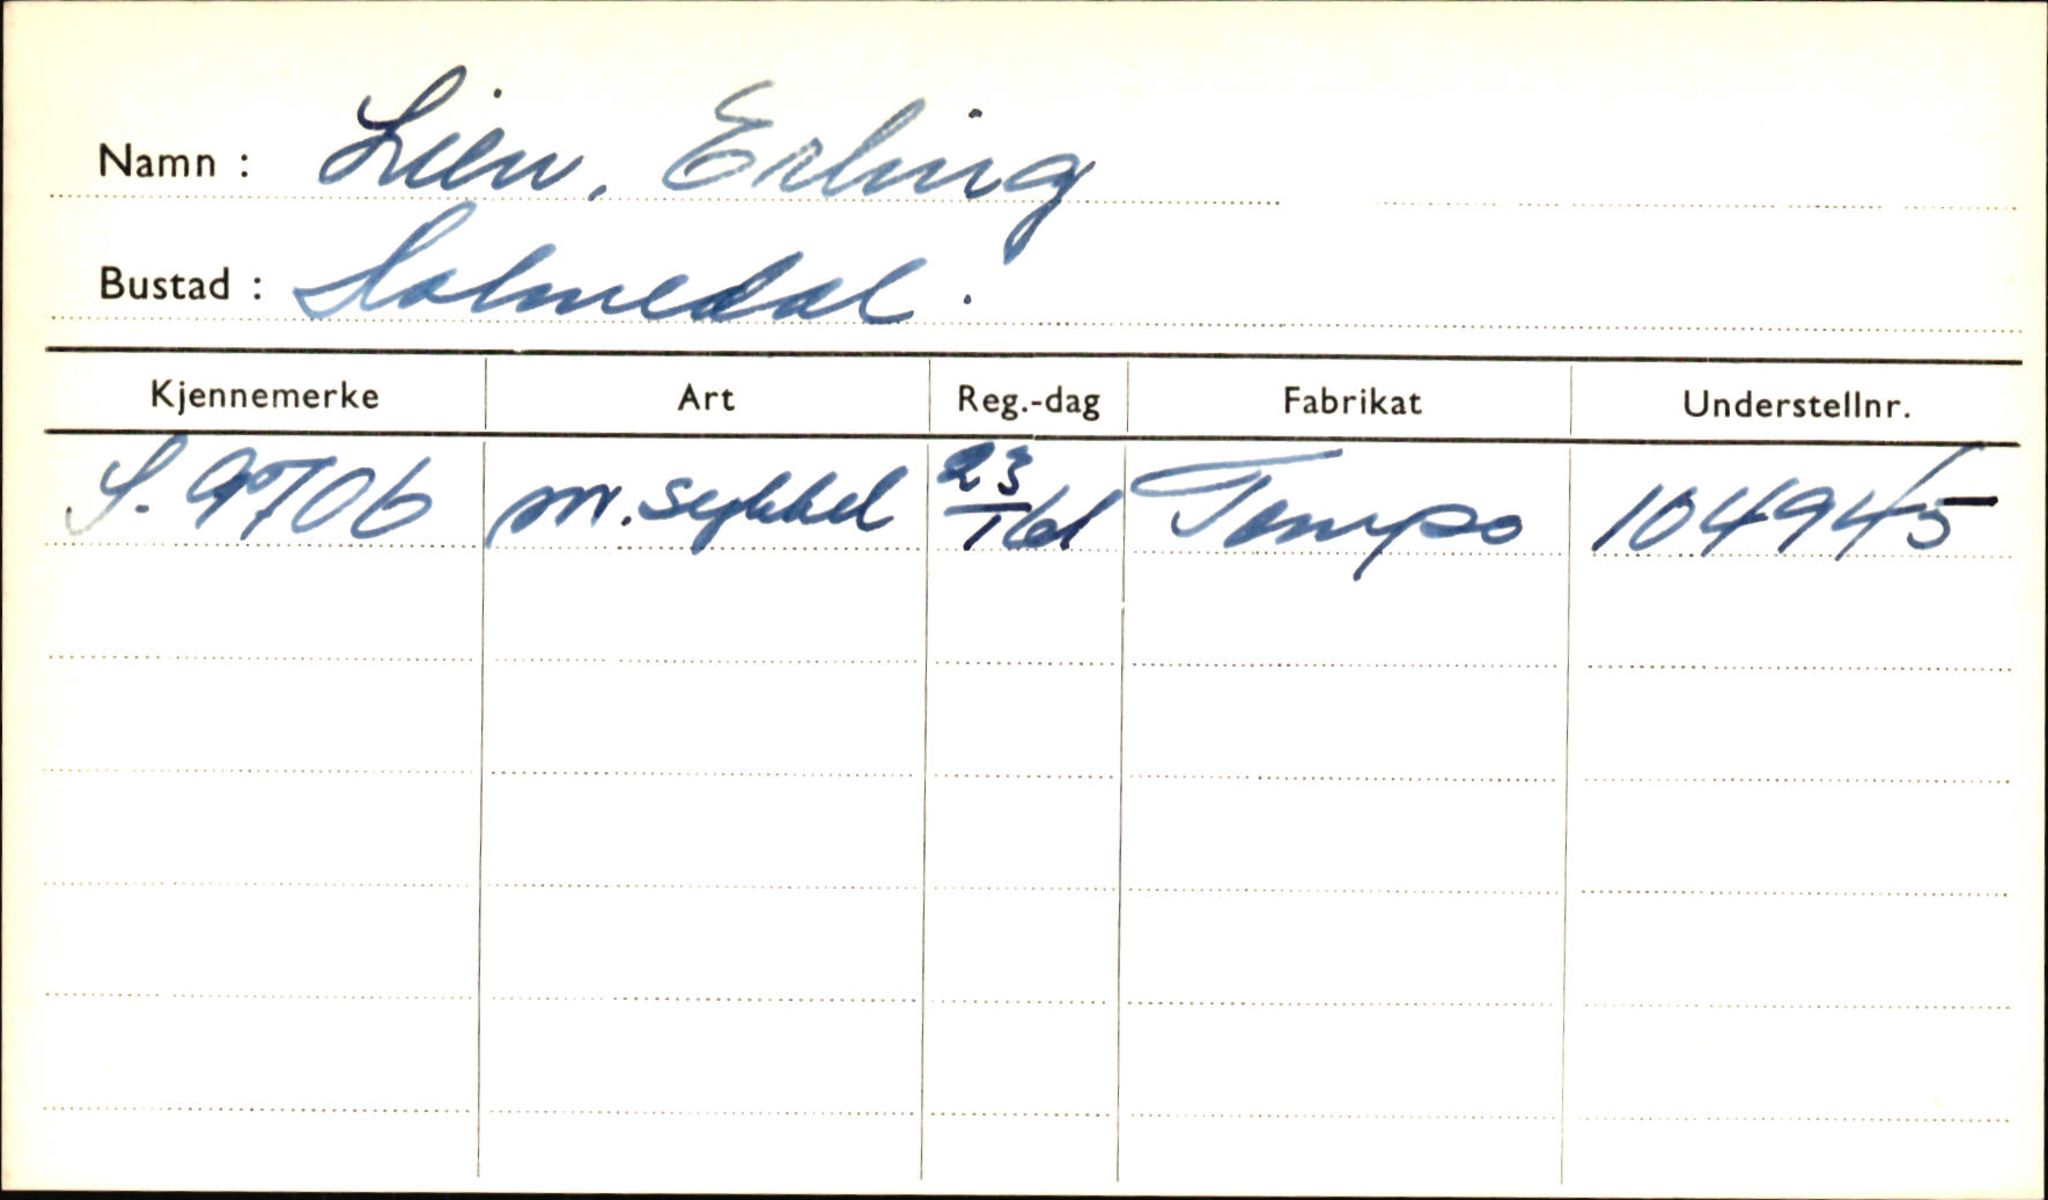 Namn : Lien, Erling
Bustad : Holmedal.
Kjennemerke Art Reg.-dag Fabrikat Understellnr.
S. 9706 m. sykkel 23/1 61 Tempo 104945